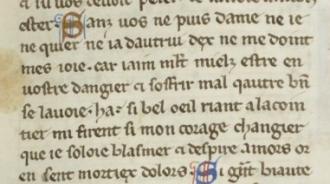 ester Sanz uos ne puis dame ne ie
ne quier ne ia dautrui dex ne me doint
mes ioie. car iaim mlt mielz estre en
uostre dangier ci soffrir mal qautre bñ
se lauoie. ha: si bel oeil riant alacoin
tier mi firent si mon corage changier
que ie soloie blasmer ci despire amors or
en sent mortiex dolors. Si gñt biaute